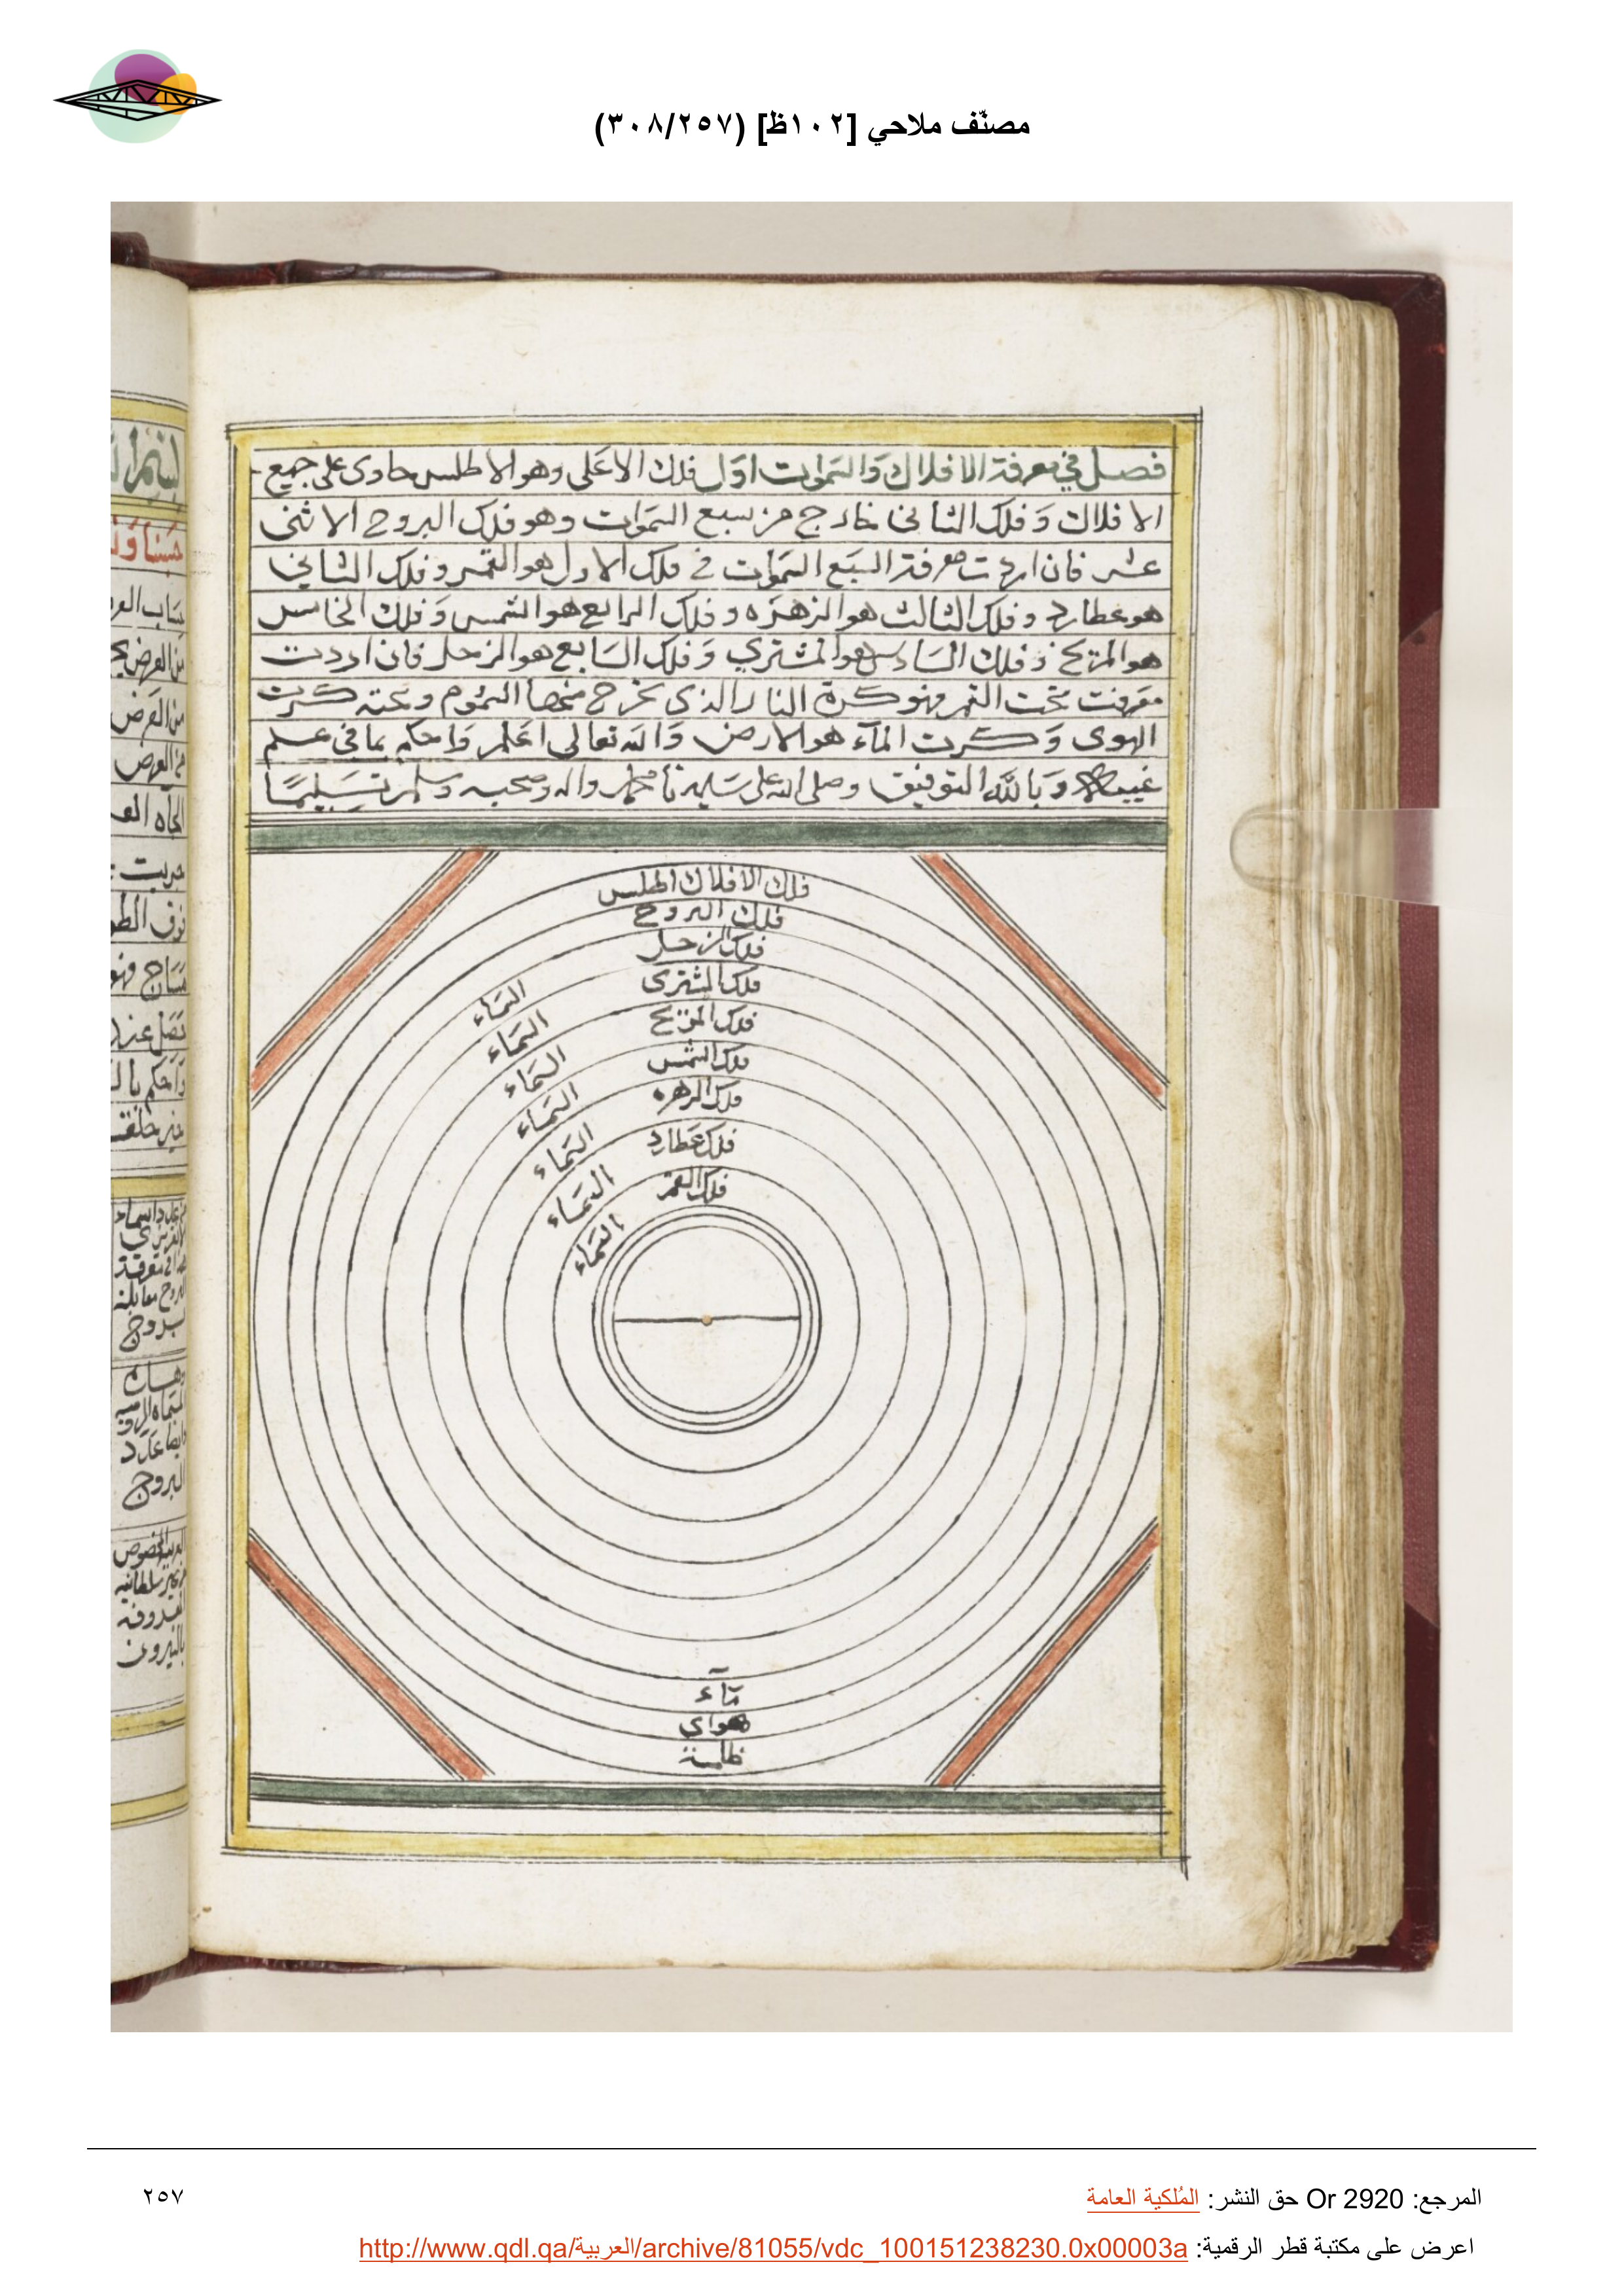 مصنّف ملاحي [١٠٢ظ] (٣٠٨/٢٥٧)
فصل في معرفة الافلاك وَالسَّموات اوّل فلك الاعَلى وهو الاطلس حاوى على جميع
الافلاك وَفلك الثانى خارج من سبع السَّموَات وهو فلك البروج الاثنى
عشر فان اردت معرفة السبع السَّموَات في فلك الاول هو القمر وفلك الثاني
هو عطارد وفلك الثالث هو الزهَره وفلك الرابع هو الشمس وَفلك الخامس
هو المريخ وفلك السَادس هو المشتري وَفلك السَابع هو الزحل فان اردت
معرفت تحت القمر فهو كرة النار الذى يخرج منها السَّموم وتحته كرت
الهوى وَكرت المآء هو الارض وَالله تعالى اعَلم وَاحكم بما في علم
غيبه وَبالله التوفيق وصلى الله على سَيدنا محمد واله وصحبه وسلم تسَليمًا
فلك الافلاك اطلس
فلك البروج
فلك الزحل
فلك المشترى
فلك المريخ
فلك الشمس
فلك الزهره
فلك عَطارد
فلك القمر
السَّماء
السَّماء
السَّماء
السَّماء
السَّماء
السَّماء
السَّماء
مآء
هواي
ظلمة
حسَاب
من العرض
من العَرض
من العرض
الجاه
البروج
عَدد
البروج
المرجع: Or 2920 حق النشر: المُلكية العامة
٢٥٧
اعرض على مكتبة قطر الرقمية: http://www.qdl.qa/العربية/archive/81055/vdc_100151238230.0x00003a